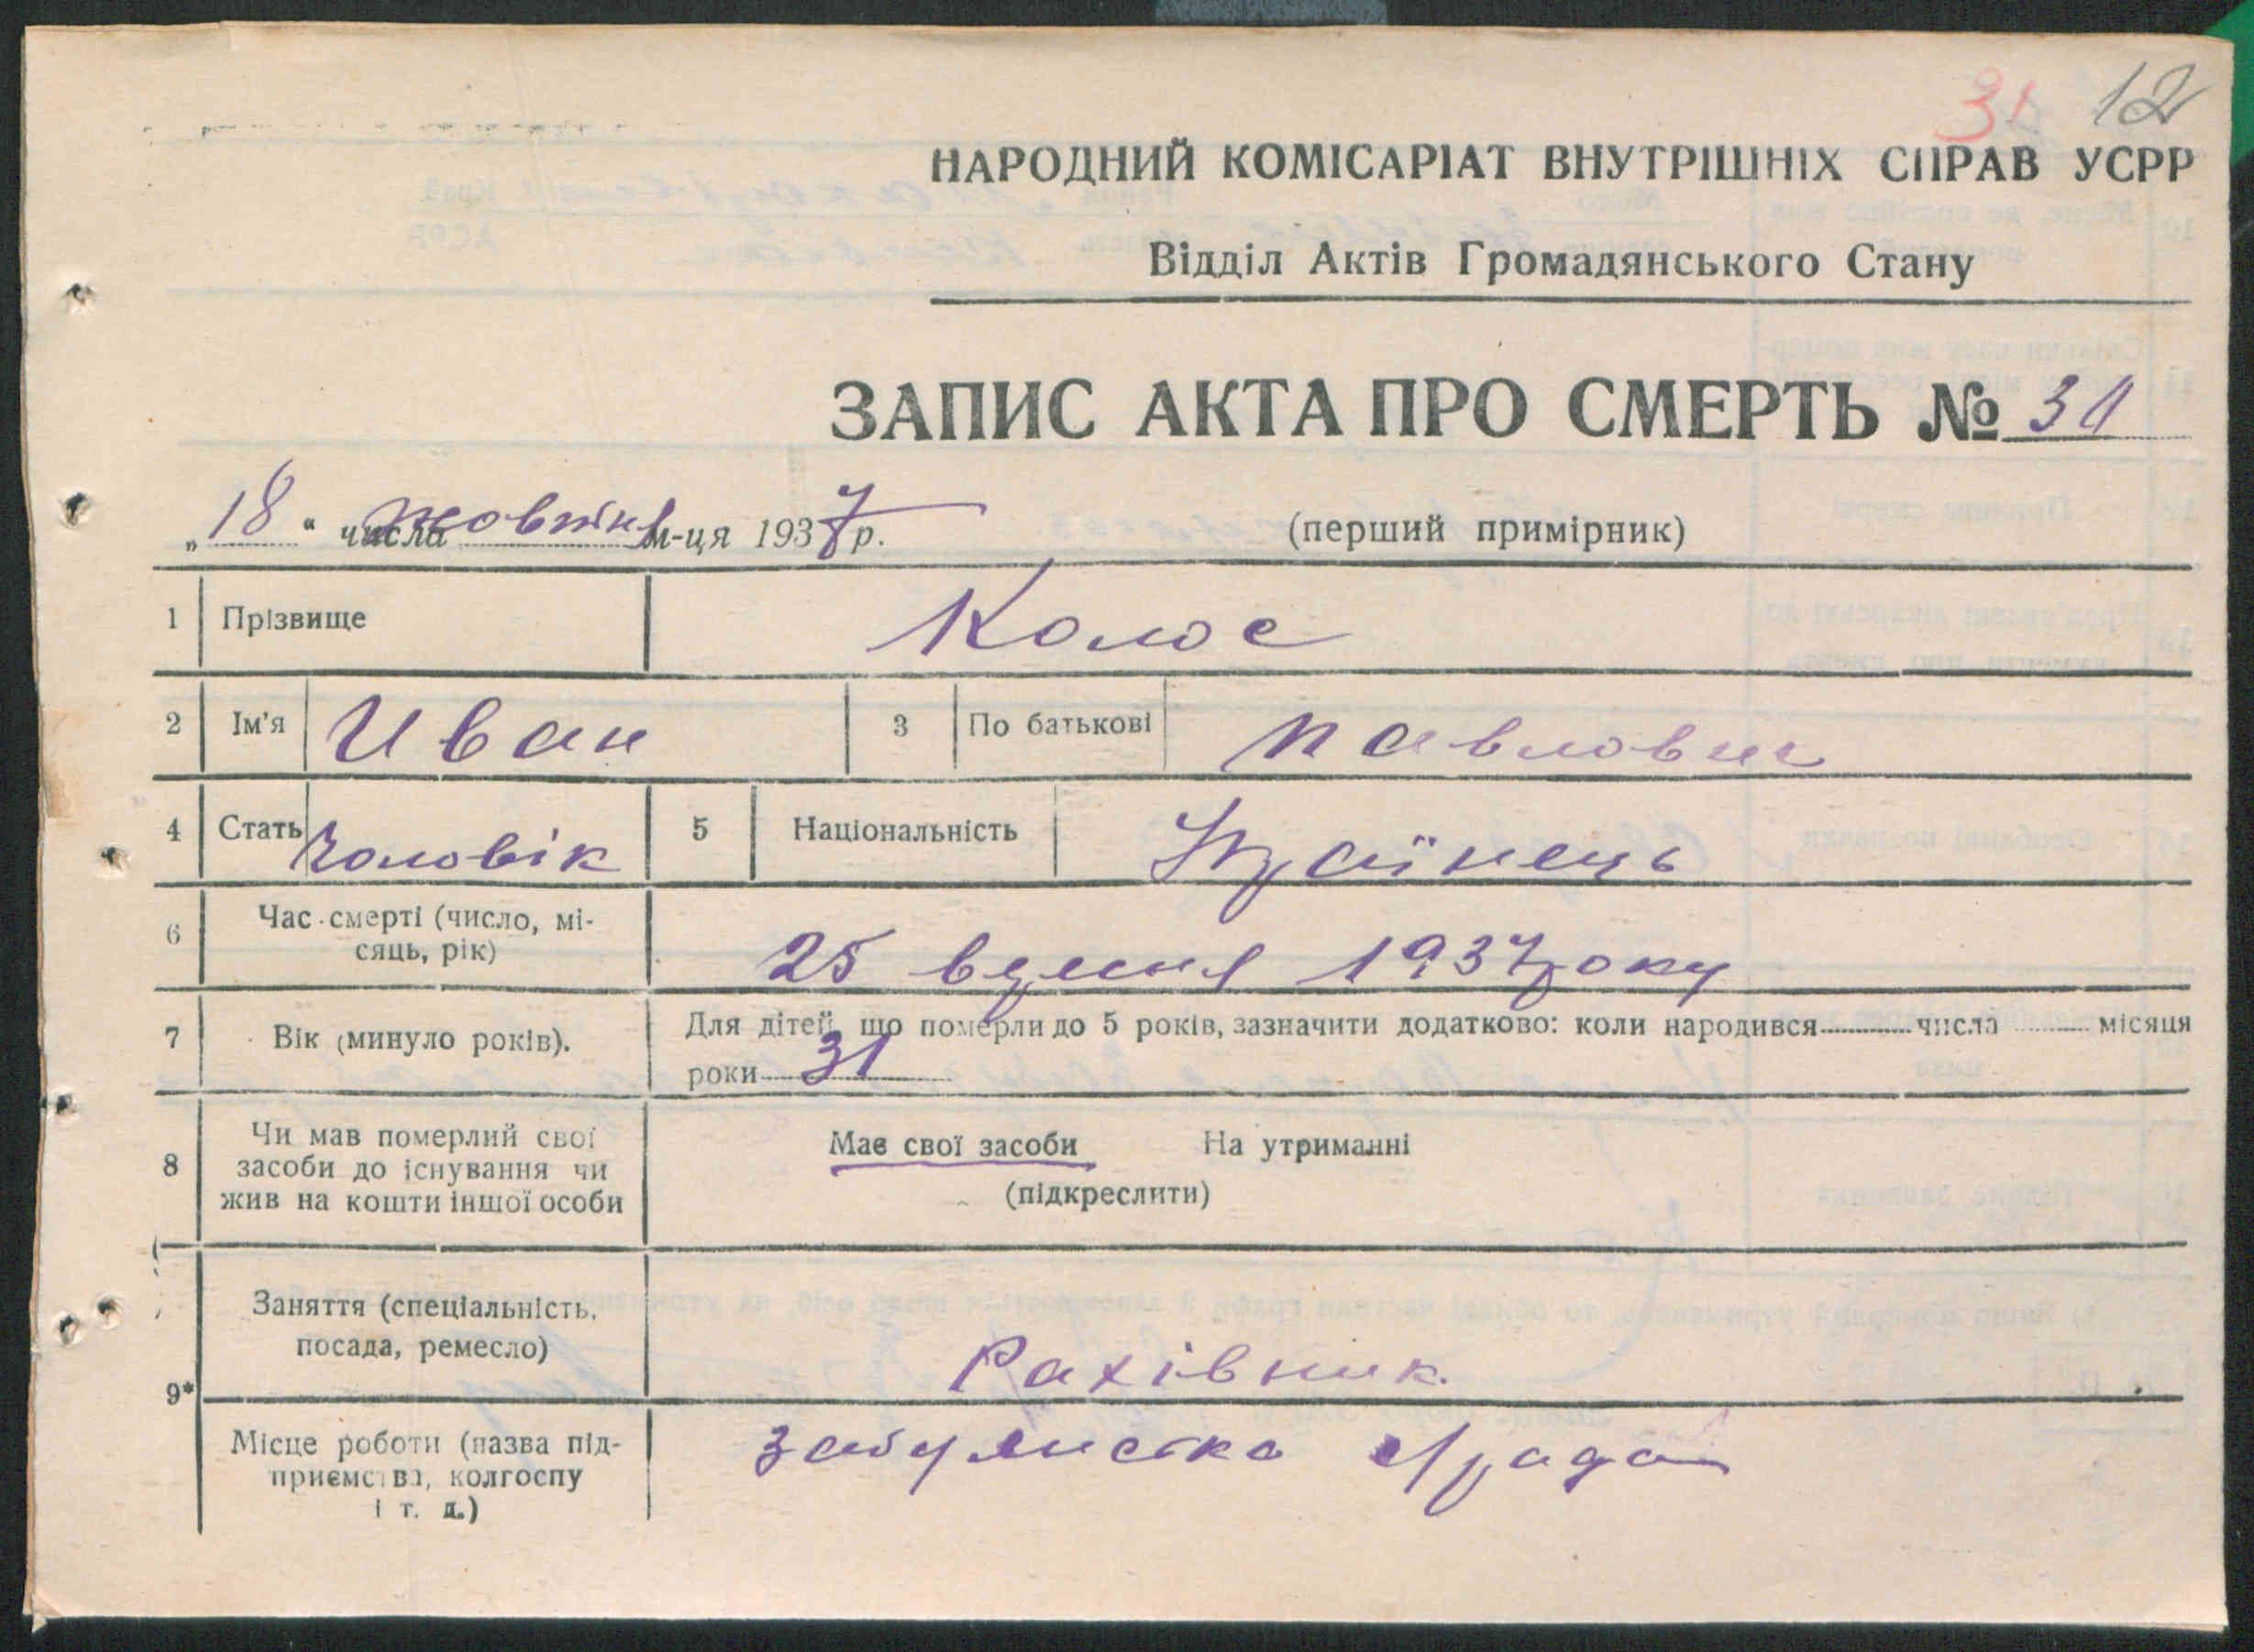 31 12
НАРОДНИЙ КОМІСАРІАТ ВНУТРІШНІХ СПРАВ УСРР
Відділ Актів Громадянського Стану
ЗАПИС АКТА ПРО СМЕРТЬ № 31
„18“ числа жовтня м-ця 1937 р. (перший примірник)
1 Прізвище Колос
2 Ім'я Иван 3 По батькові Павлович
4 Стать Чоловік 5 Національність Українець
6 Час смерті (число, мі-
сяць, рік)
25 вересня 1937 року
7 Вік (минуло років). Для дітей, що померли до 5 років, зазначити додатково: коли народився числа місяця
роки 31
8 Чи мав померлий свої
засоби до існування чи
жив на кошти іншої особи
Має свої засоби На утриманні
(підкреслити)
9* Заняття (спеціальність,
посада, ремесло)
Рахівник
Місце роботи (назва під-
приємства, колгоспу
і т. д.)